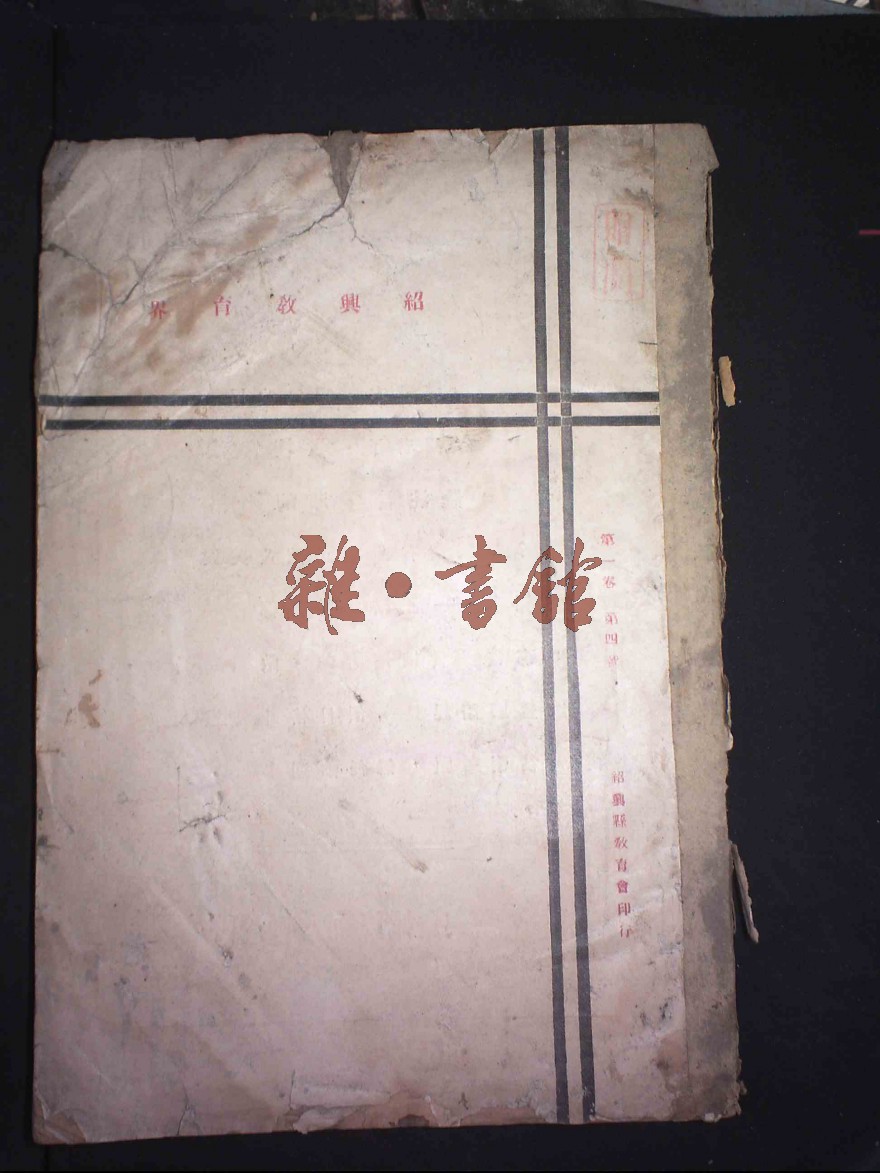 紹興教育界
第一卷 第四號
紹興縣教育會印行
雜·書館